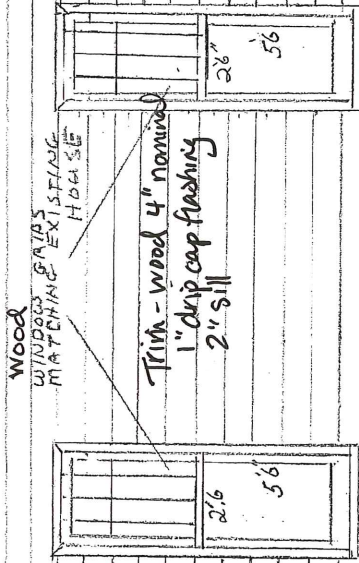 Wood
WINDOW GRIDS
MATCHING EXISTING
HOUSE
Trim - wood 4" nominal
1" drip cap flashing
2" sill
2'6"
5'6"
2'6
5'6"